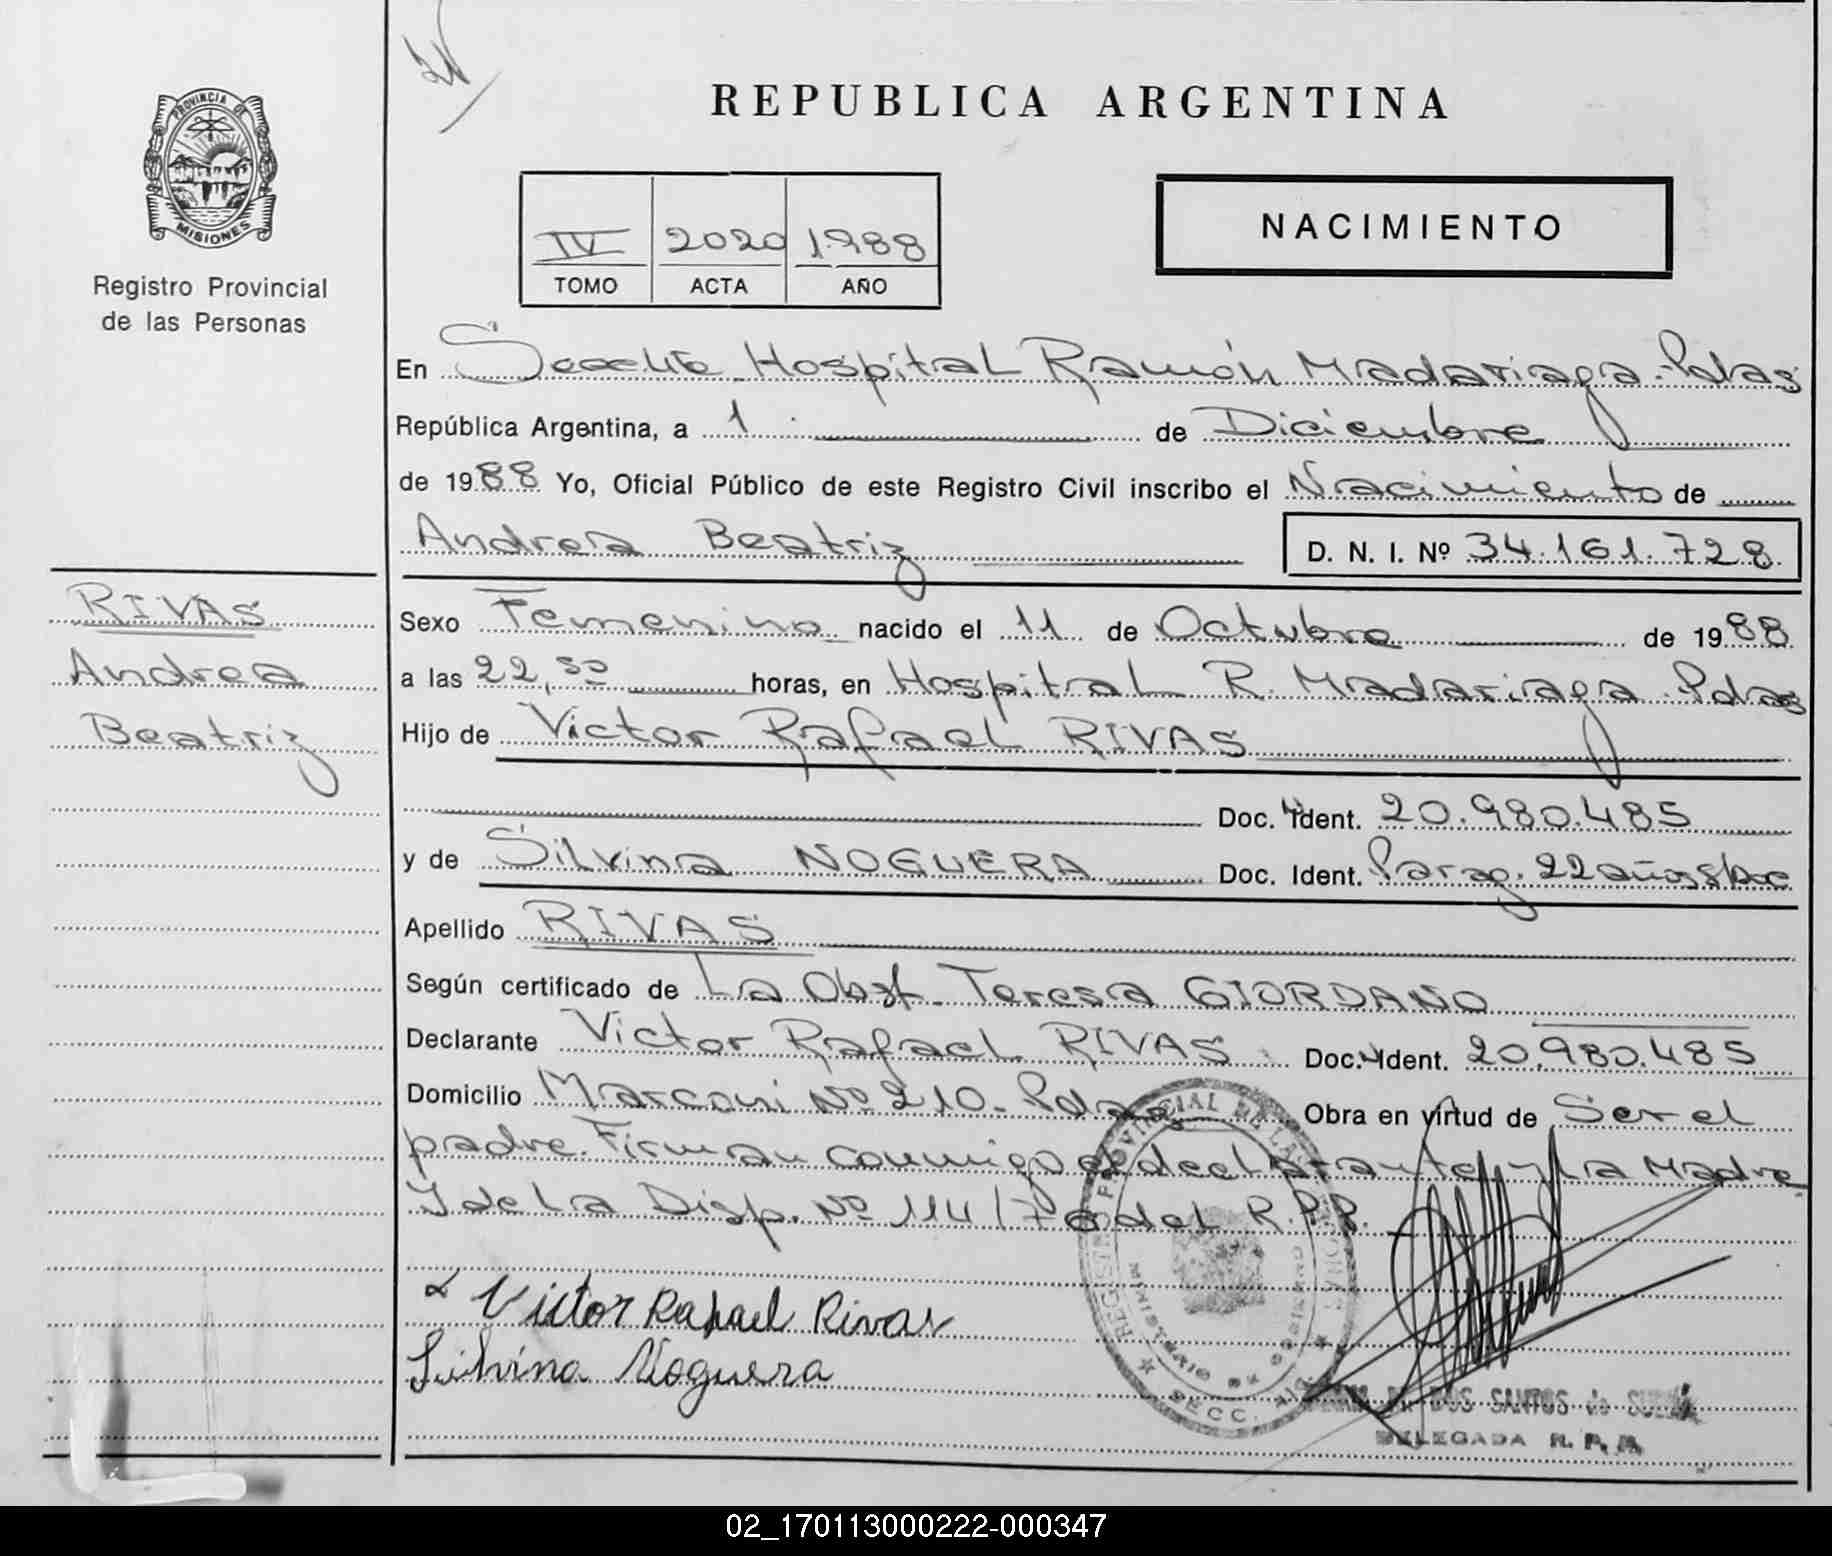 PROVINCIA DE
MISIONES
Registro Provincial
de las Personas
RIVAS
Andrea
Beatriz
REPUBLICA ARGENTINA
IV 2020 1988
TOMO ACTA AÑO
NACIMIENTO
En Hospital Ramón Madariaga - Pdas
República Argentina, a 1 de Diciembre
de 1988 Yo, Oficial Público de este Registro Civil inscribo el Nacimiento de
Andrea Beatriz D. N. I. Nº 34.161.728
Sexo Femenino nacido el 11 de Octubre de 1988
a las 22,50 horas, en Hospital R. Madariaga - Pdas
Hijo de Victor Rafael RIVAS
Doc. Ident. 20.980.485
y de Silvina NOGUERA Doc. Ident. Parag. 22 años
Apellido RIVAS
Según certificado de La Obst. Teresa GIORDANO
Declarante Victor Rafael RIVAS Doc. Ident. 20.980.485
Domicilio Marconi Nº 210 - Pdas Obra en virtud de Ser el
padre. Firman conmigo el declarante y la Madre
Y de la Disp. Nº 114/76 del R.P.P.
Victor Rafael Rivas
Silvina Noguera
DOS SANTOS de
DELEGADA R. P. P.
02_170113000222-000347